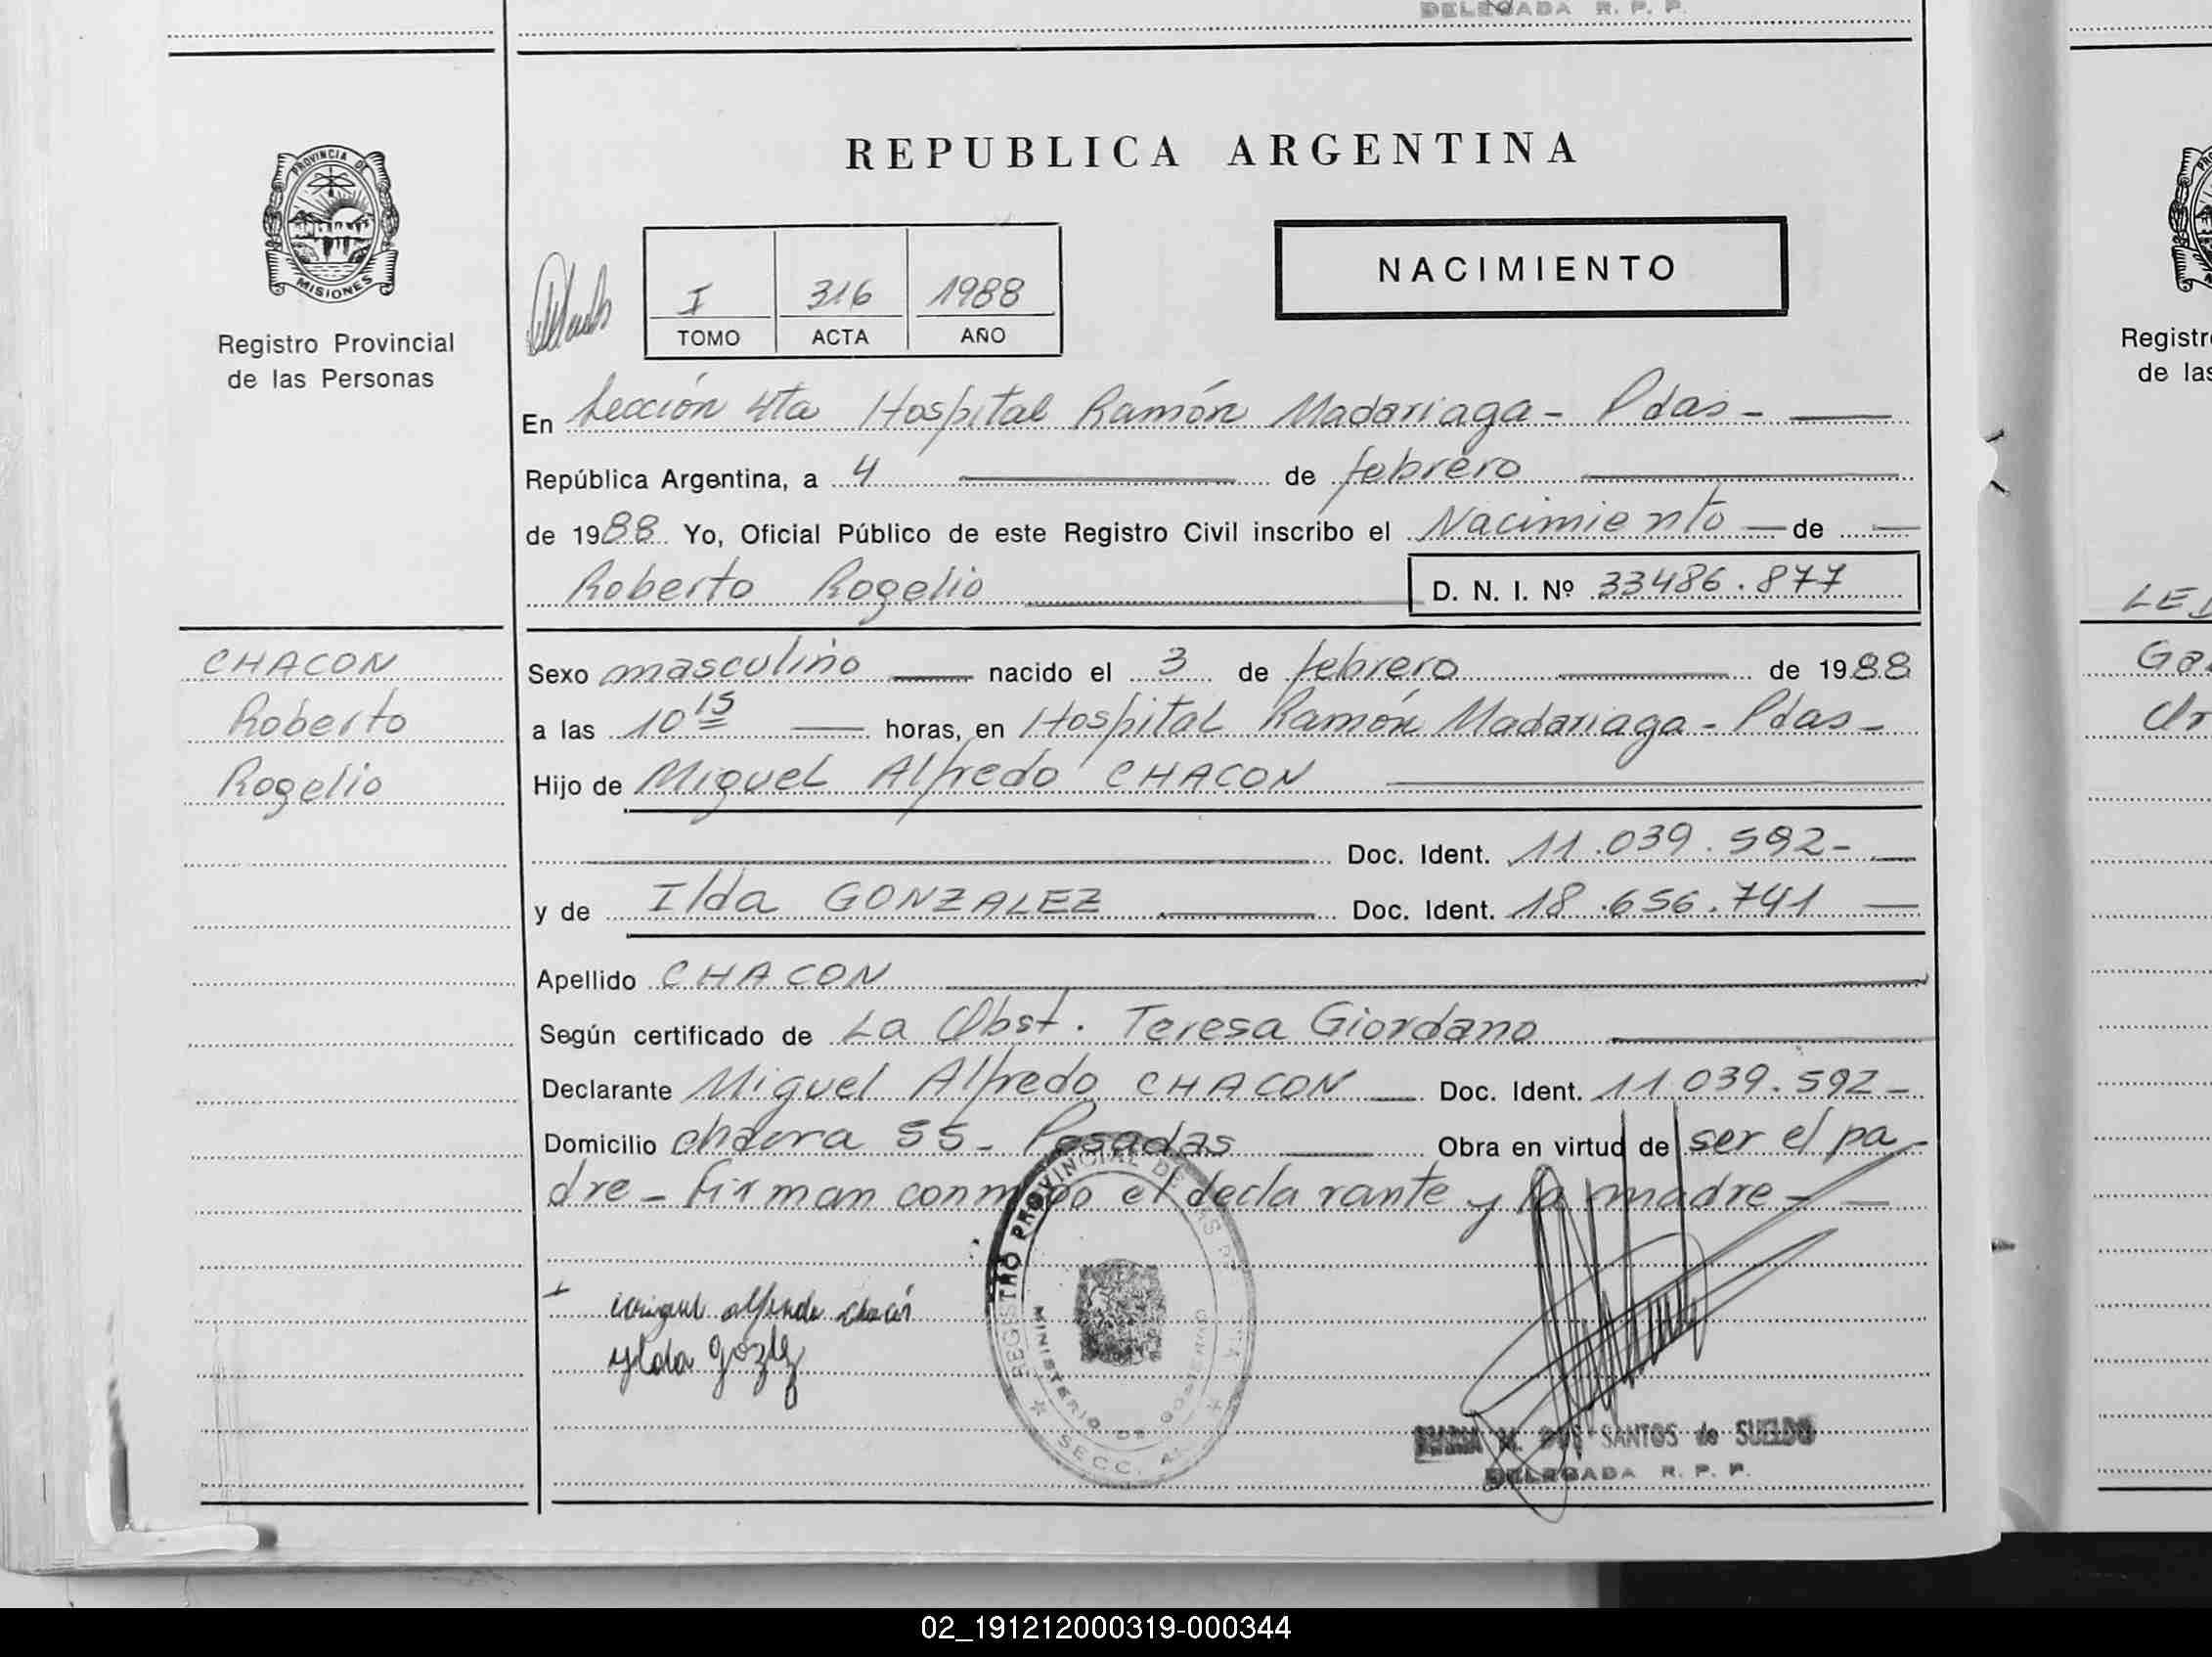 DELEGADA R. P. P.
PROVINCIA DE
MISIONES
Registro Provincial
de las Personas
REPUBLICA ARGENTINA
I 316 1988
TOMO ACTA AÑO
NACIMIENTO
En Sección 4ta Hospital Ramón Madariaga - Pdas -
República Argentina, a 4 de febrero
de 1988 Yo, Oficial Público de este Registro Civil inscribo el Nacimiento de
Roberto Rogelio D. N. I. Nº 33486.877
CHACON
Roberto
Rogelio
Sexo masculino nacido el 3 de febrero de 1988
a las 10 15 horas, en Hospital Ramón Madariaga - Pdas -
Hijo de Miguel Alfredo CHACON
Doc. Ident. 11.039.592 -
y de Ilda GONZALEZ Doc. Ident. 18.656.741
Apellido CHACON
Según certificado de La Obst. Teresa Giordano
Declarante Miguel Alfredo CHACON Doc. Ident. 11.039.592 -
Domicilio chacra 55 - Posadas Obra en virtud de ser el pa
dre - Firman conmigo el declarante y la madre -
REGISTRO PROVINCIAL DE LAS
MINISTERIO DE GOBIERNO
SECC. 4
miguel alfredo chacón
ylda gozlz
DOS SANTOS de SUELDO
DELEGADA R. P. P.
Registr
de las
LED
Ga
02_191212000319-000344